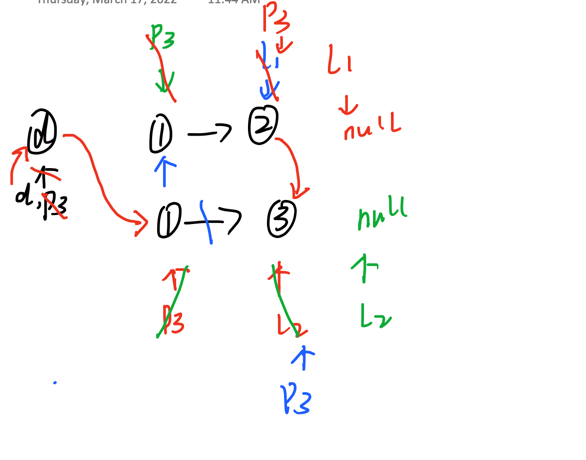 Thursday, March 17, 2022 11:44 AM
P3
P3
L1
L1
null
d
1
2
d, P3
1
3
null
P3
L2
L2
P3